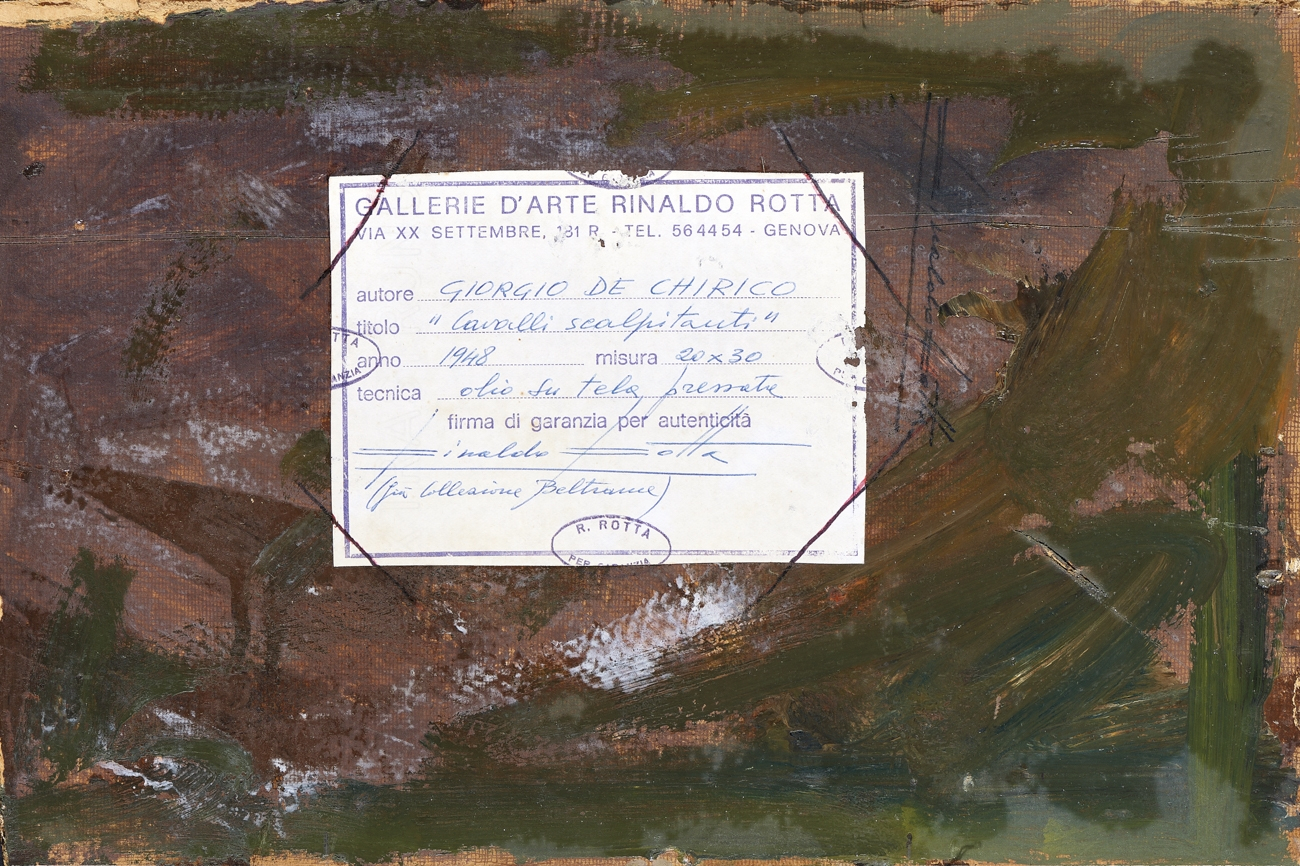 GALLERIE D'ARTE RINALDO ROTTA
VIA XX SETTEMBRE, 181 R. - TEL. 564454 - GENOVA
autore GIORGIO DE CHIRICO
titolo "Cavalli scalpitanti"
anno 1948 misura 20x30
tecnica olio su tela pressata
firma di garanzia per autenticità
Rinaldo Rotta
(già Collezione Beltrame)
TTA
NZIA
R. ROTTA
PER GARANZIA